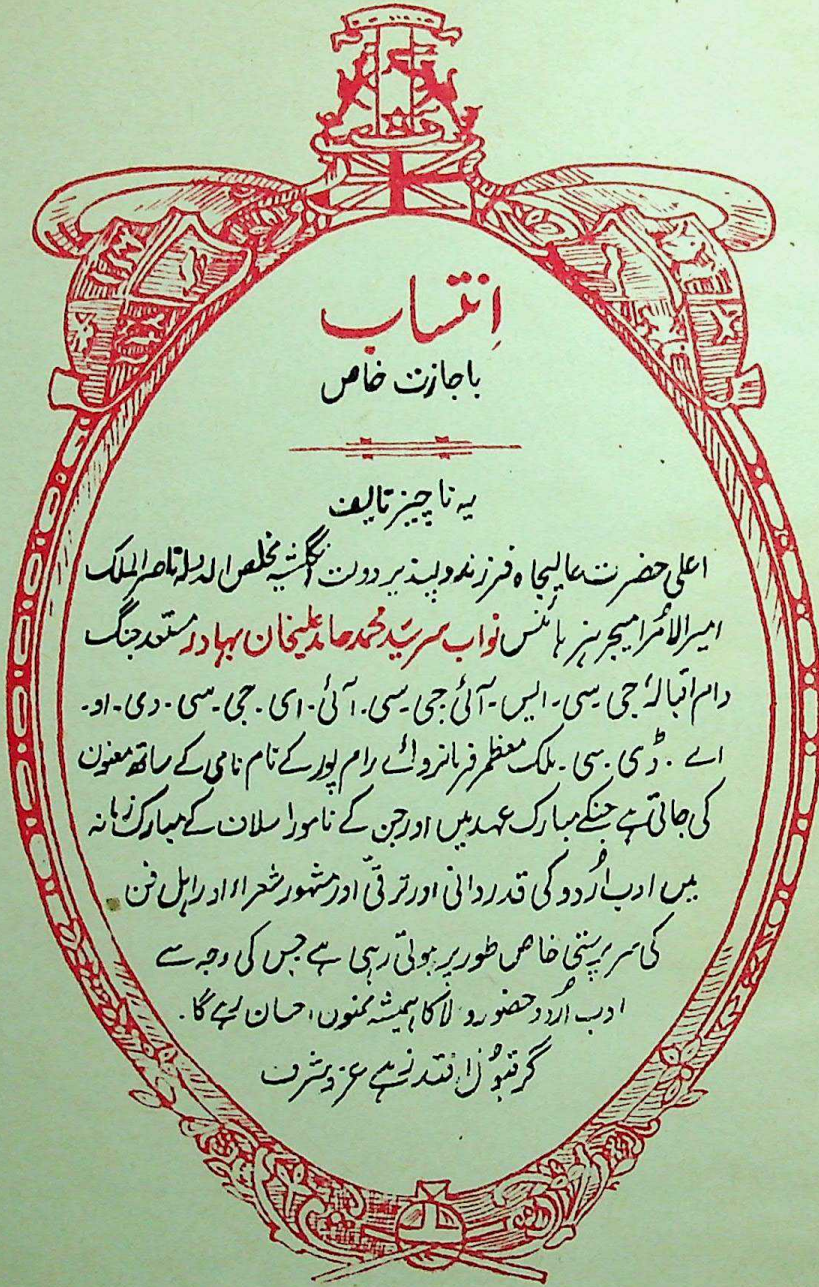 اِنتساب
باجازت خاص
یہ ناچیز تالیف
اعلی حضرت عالیجاہ فرزند دلپذیر دولت انگلشیہ مخلص الدولہ ناصر الملک
امیر الامرا میجر ہز ہائنس نواب سر سید محمد حامد علیخان بہادر مستعد جنگ
دام اقبالہٗ جی۔سی۔ایس۔آئی جی۔سی۔آئی۔ای۔جی۔سی۔وی۔او۔
اے۔ڈی۔سی۔ملک معظم فرمانروائے رام پور کے نام نامی کے ساتھ معنون
کی جاتی ہے جنکے مبارک عہد میں اور جن کے نامور اسلاف کے مبارک زمانہ
میں ادب اُردو کی قدردانی اور ترقی اور مشہور شعراء اور اہل فن
کی سرپرستی خاص طور پر ہوتی رہی ہے جس کی وجہ سے
ادب اُردو حضور والا کا ہمیشہ ممنون احسان رہے گا۔
گر قبول افتد زہے عز و شرف